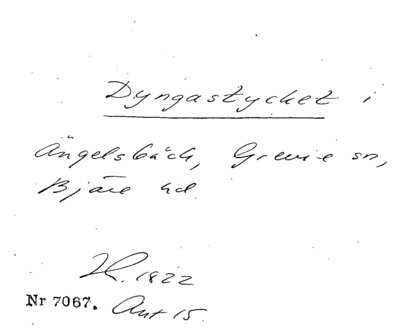 Dyngastycket i
Ängelsbäck, Grevie sn,
Bjäre hd.
H. 1822
Nr 7067. Akt 15.